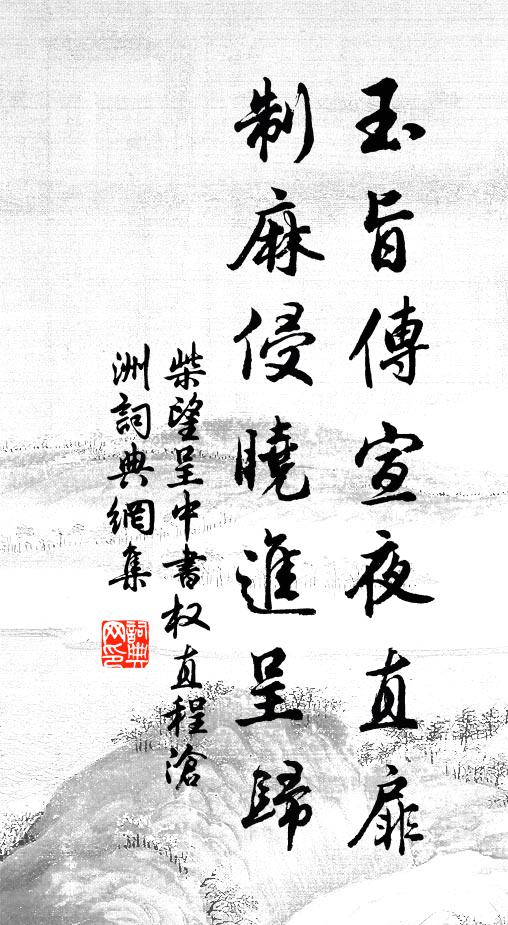 玉旨傳宣夜直扉
制麻侵曉進呈歸
柴望呈中書权直程滄
洲詞典網集
詞典網印